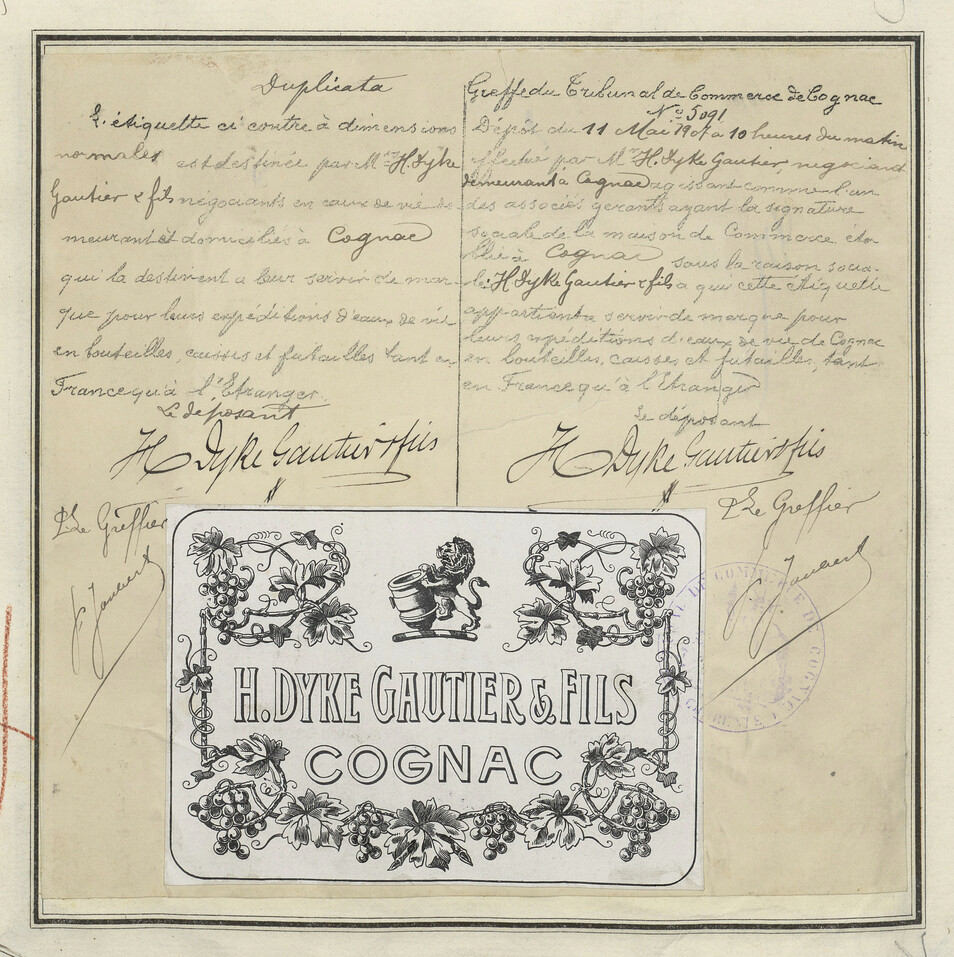 Duplicata
L'étiquette ci contre à dimensions
normales est destinée par Mrs H. Dyke
Gautier & fils négociants en eaux de vie de-
meurant et domiciliés à Cognac
qui la destinent a leur servir de mar-
que pour leurs expéditions d'eaux de vie
en bouteilles, caisses et futailles tant en
France qu'à l'Etranger.
Le déposant
H Dyke Gautier & fils
Pr Le Greffier
F. Joubert
Greffe du Tribunal de Commerce de Cognac
No 5091
Dépôt du 11 Mai 1907 a 10 heures du matin
effectué par Mr H. Dyke Gautier, négociant
demeurant à Cognac agissant comme l'un
des associés gérants ayant la signature
sociale de la maison de Commerce éta-
blie à Cognac sous la raison socia-
le: H Dyke Gautier & fils a qui cette étiquette
appartient a servir de marque pour
leurs expéditions d'eaux de vie de Cognac
en bouteilles, caisses et futailles, tant
en France qu'à l'étranger
Le déposant
H Dyke Gautier & fils
Pr Le Greffier
F. Joubert
DE COMMERCE DE COGNAC
H. DYKE GAUTIER & FILS
COGNAC